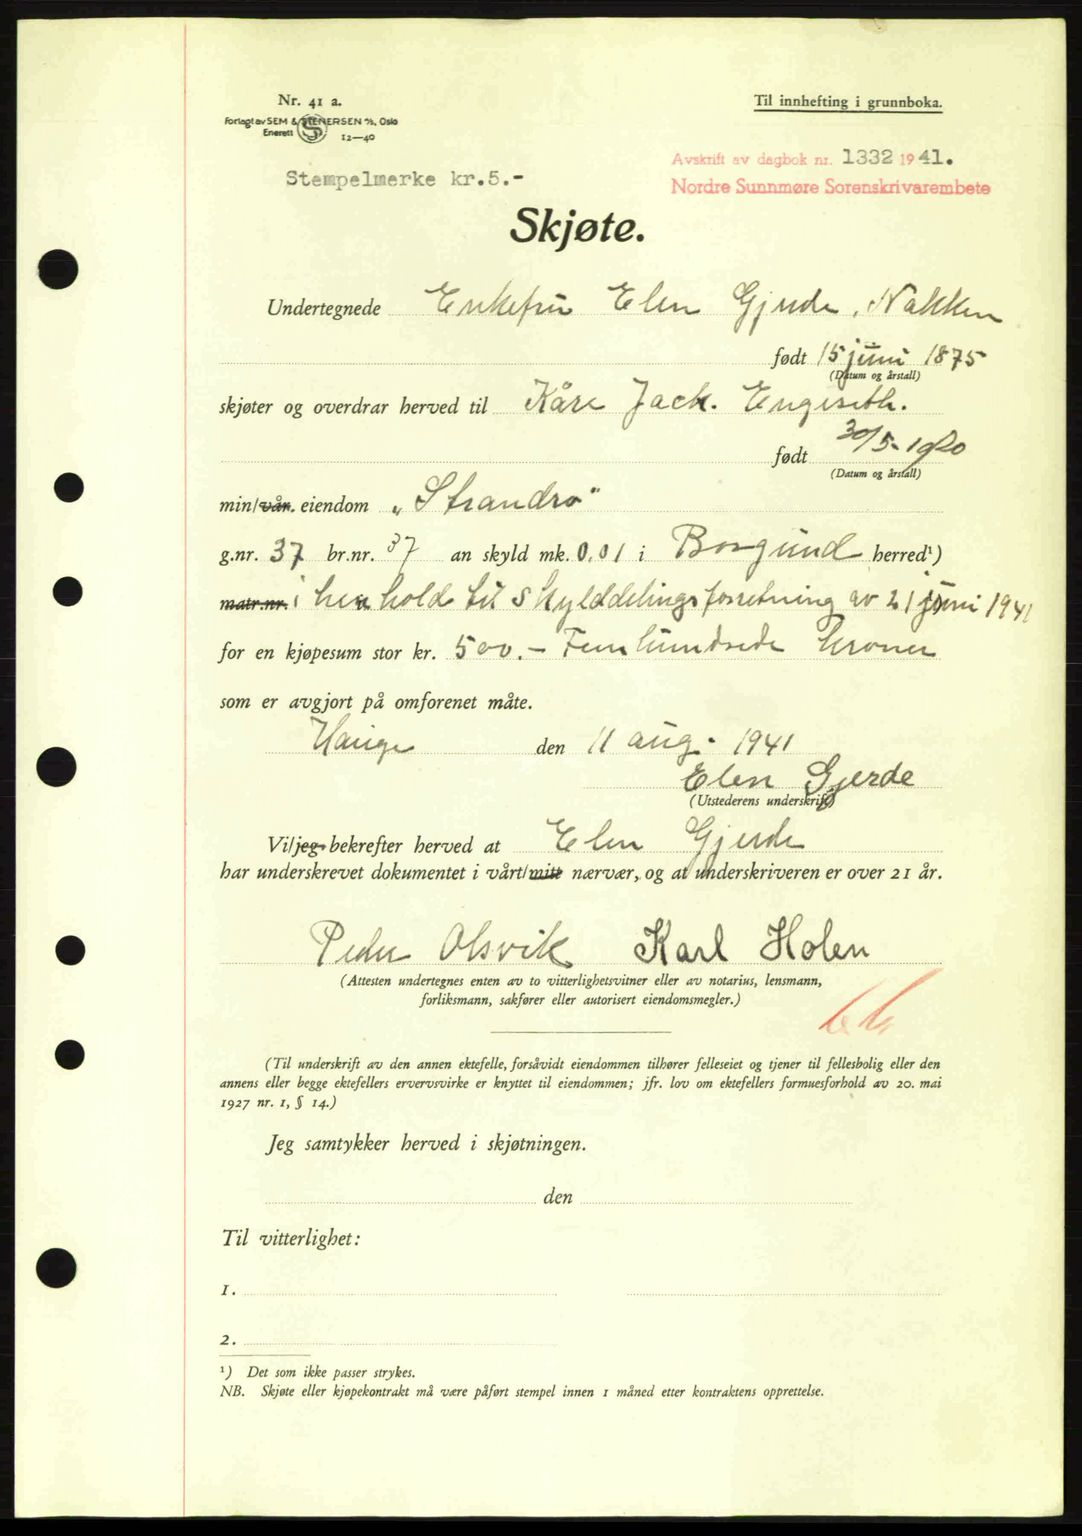 Nr. 41 a.
Til innhefting i grunnboka.
Forlagt av SEM & STENERSEN A/S, Oslo
Enerett S 12—40
Avskrift av dagbok nr. 1332 1941.
Stempelmerke kr.5.-
Nordre Sunnmøre Sorenskrivarembete
Skjøte.
Undertegnede Enkefru Elen Gjerde, Nakken
født 15 juni 1875
(Datum og årstall)
skjøter og overdrar herved til Kåre Jack. Engeseth.
født 30/5-1920
(Datum og årstall)
min/vår. eiendom „Strandro"
g.nr. 37 br.nr. 37 an skyld mk. 0,01 i Borgund herred¹)
matr.nr. i henhold til skylddelingsforretning av 21 juni 1941
for en kjøpesum stor kr. 500.- Femhundrede kroner
som er avgjort på omforenet måte.
Hauge den 11 aug. 1941
Elen Gjerde
(Utstederens underskrift)
Vi/jeg bekrefter herved at Elen Gjerde
har underskrevet dokumentet i vårt/mitt nærvær, og at underskriveren er over 21 år.
Peder Olsvik Karl Holen
(Attesten undertegnes enten av to vitterlighetsvitner eller av notarius, lensmann,
forliksmann, sakfører eller autorisert eiendomsmegler.)
(Til underskrift av den annen ektefelle, forsåvidt eiendommen tilhører felleseiet og tjener til fellesbolig eller den
annens eller begge ektefellers ervervsvirke er knyttet til eiendommen; jfr. lov om ektefellers formuesforhold av 20. mai
1927 nr. 1, § 14.)
Jeg samtykker herved i skjøtningen.
den
Til vitterlighet:
1.
2.
¹) Det som ikke passer strykes.
NB. Skjøte eller kjøpekontrakt må være påført stempel innen 1 måned etter kontraktens opprettelse.